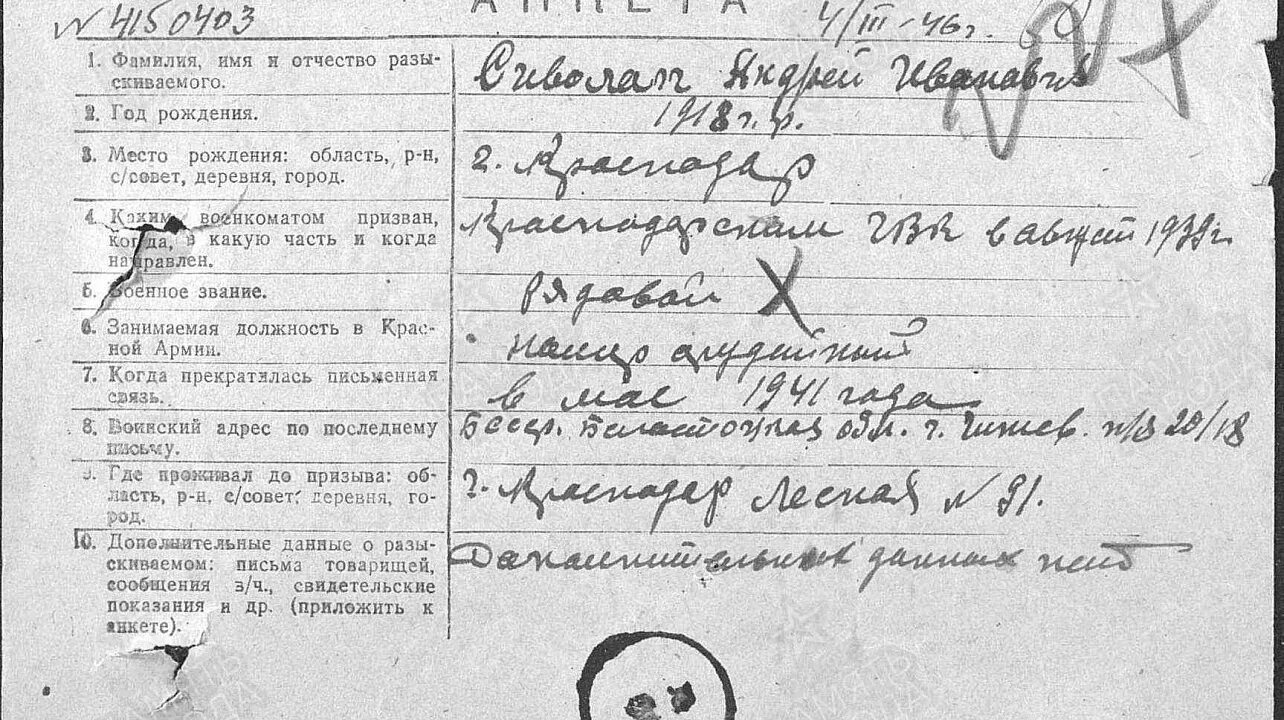 АНКЕТА
N 4150403
4/III-46г.
1. Фамилия, имя и отчество разы-
скиваемого.
Сиволап Андрей Иванович
2. Год рождения.
1918 г.р.
3. Место рождения: область, р-н,
с/совет, деревня, город.
г. Краснодар
4. Каким военкоматом призван,
когда, в какую часть и когда
направлен.
Краснодарским ГВК в август 1939г.
5. Военное звание.
рядовой
6. Занимаемая должность в Крас-
ной Армии.
номер орудийный
7. Когда прекратилась письменная
связь.
в мае 1941 года
8. Воинский адрес по последнему
письму.
Белостоцкая обл. г. п/я 20/18
9. Где проживал до призыва: об-
ласть, р-н, с/совет, деревня, го-
род.
г. Краснодар Лесная N 91.
10. Дополнительные данные о разы-
скиваемом: письма товарищей,
сообщения з/ч., свидетельские
показания и др. (приложить к
анкете).
Дополнительных данных нет